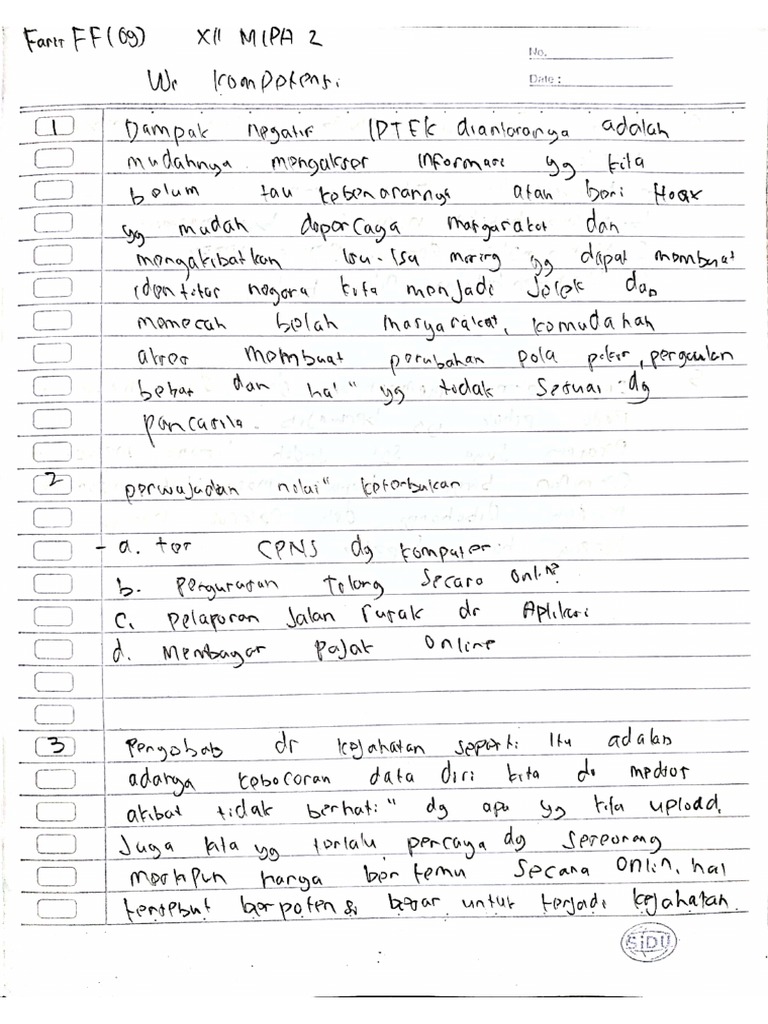 Faris FF (09) XII MIPA 2
No.
Date :
Uji Kompetensi
1 Dampak negatif IPTEK diantaranya adalah
mudahnya mengakses informasi yg kita
belum tau kebenarannya atau beri Hoax
yg mudah dipercaya masyarakat dan
mengakibatkan isu-isu miring yg dapat membuat
identitas negara kita menjadi jelek dan
memecah belah masyarakat, kemudahan
akses membuat perubahan pola pikir, pergaulan
bebas dan hal" yg tidak sesuai dg
pancasila.
2 perwujudan nilai" keterbukaan
- a. tes CPNS dg komputer
b. Pengurusan tilang secara online
c. pelaporan jalan rusak dr Aplikasi
d. Membayar pajak online
3 Penyebab dr kejahatan seperti itu adalah
adanya kebocoran data diri kita di medsos
akibat tidak berhati" dg apa yg kita upload,
Juga kita yg terlalu percaya dg seseorang
meskipun hanya bertemu secara onlin, hal
tersebut berpotensi besar untuk terjadi kejahatan.
SIDU